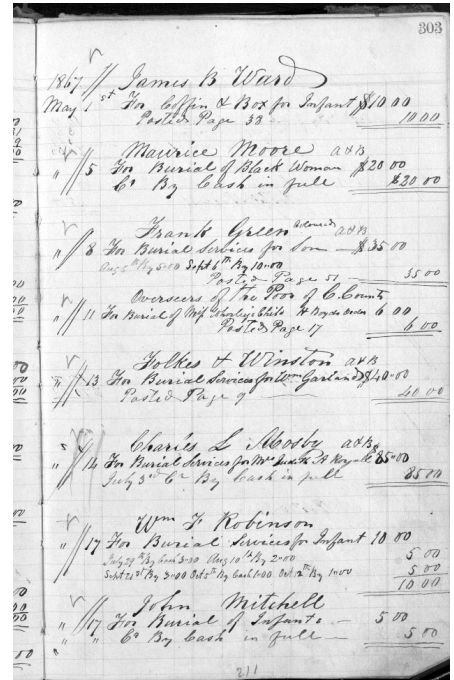 303
1867 // James B Ward
May 1st For Coffin & Box for Infant $10 00
Posted Page 33 10 00
Maurice Moore a & B
" // 5 For Burial of Black Woman $20 00
Cr By Cash in full $20 00
Frank Green Colored a & B
" // 8 For Burial Services for Son — $35 00
Aug 5th By 5=00 Sept 6th By 10=00
Posted Page 51 35 00
Overseers of the Poor of C. County
" // 11 For Burial of Child Order 6 00
Posted Page 17 6 00
Folkes & Winston a & B
" // 13 For Burial Services for Wm Garland $40=00
Posted Page 9 40 00
Charles L Mosby a & B
" // 14 For Burial Services for Mrs Judith A 85=00
July 3rd Cr By Cash in full 85 00
Wm F Robinson
" // 17 For Burial Services for Infant 10 00
July 29th By Cash 3=00 Aug 10th By 2=00 5 00
Sept 21st By 3=00 Oct 5th By Cash 1=00 Oct 12th By 1=00 5 00
10 00
John Mitchell
" // 17 For Burial of Infant — 5 00
" " Cr By Cash in full — 5 00
211